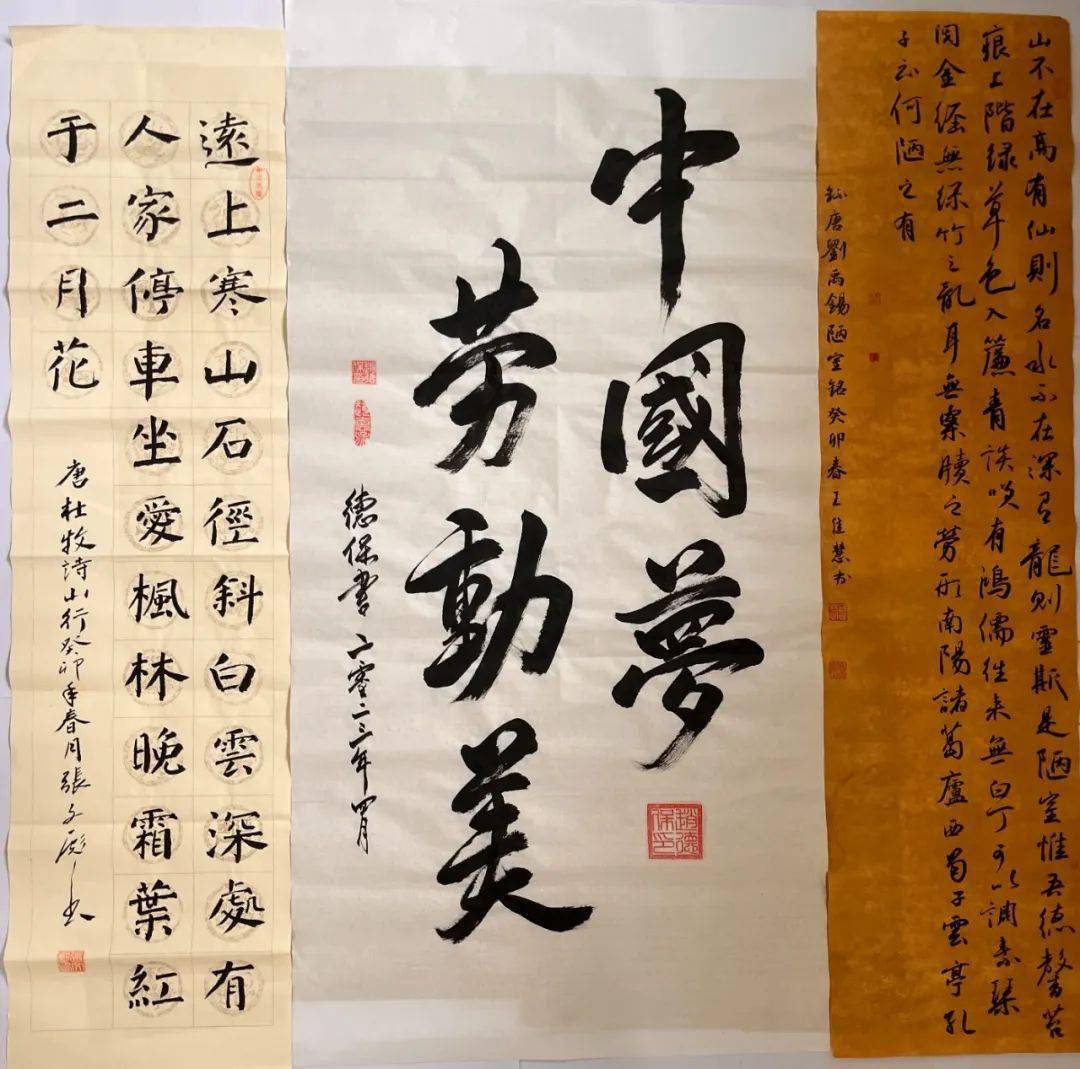 山不在高有仙則名水不在深有龍則靈斯是陋室惟吾德馨苔
痕上階綠草色入簾青談笑有鴻儒往来無白丁可以調素琴
閱金經無絲竹之亂耳無案牘之勞形南陽諸葛廬西蜀子雲亭孔
子云何陋之有
錄唐劉禹錫陋室銘癸卯春王佳慧书
中國夢
劳動美
德保書 二零二三年四月
趙德保印
遠上寒山石徑斜白雲深處有
人家停車坐愛楓林晚霜葉紅
于二月花
唐杜牧詩山行癸卯年春月張子书